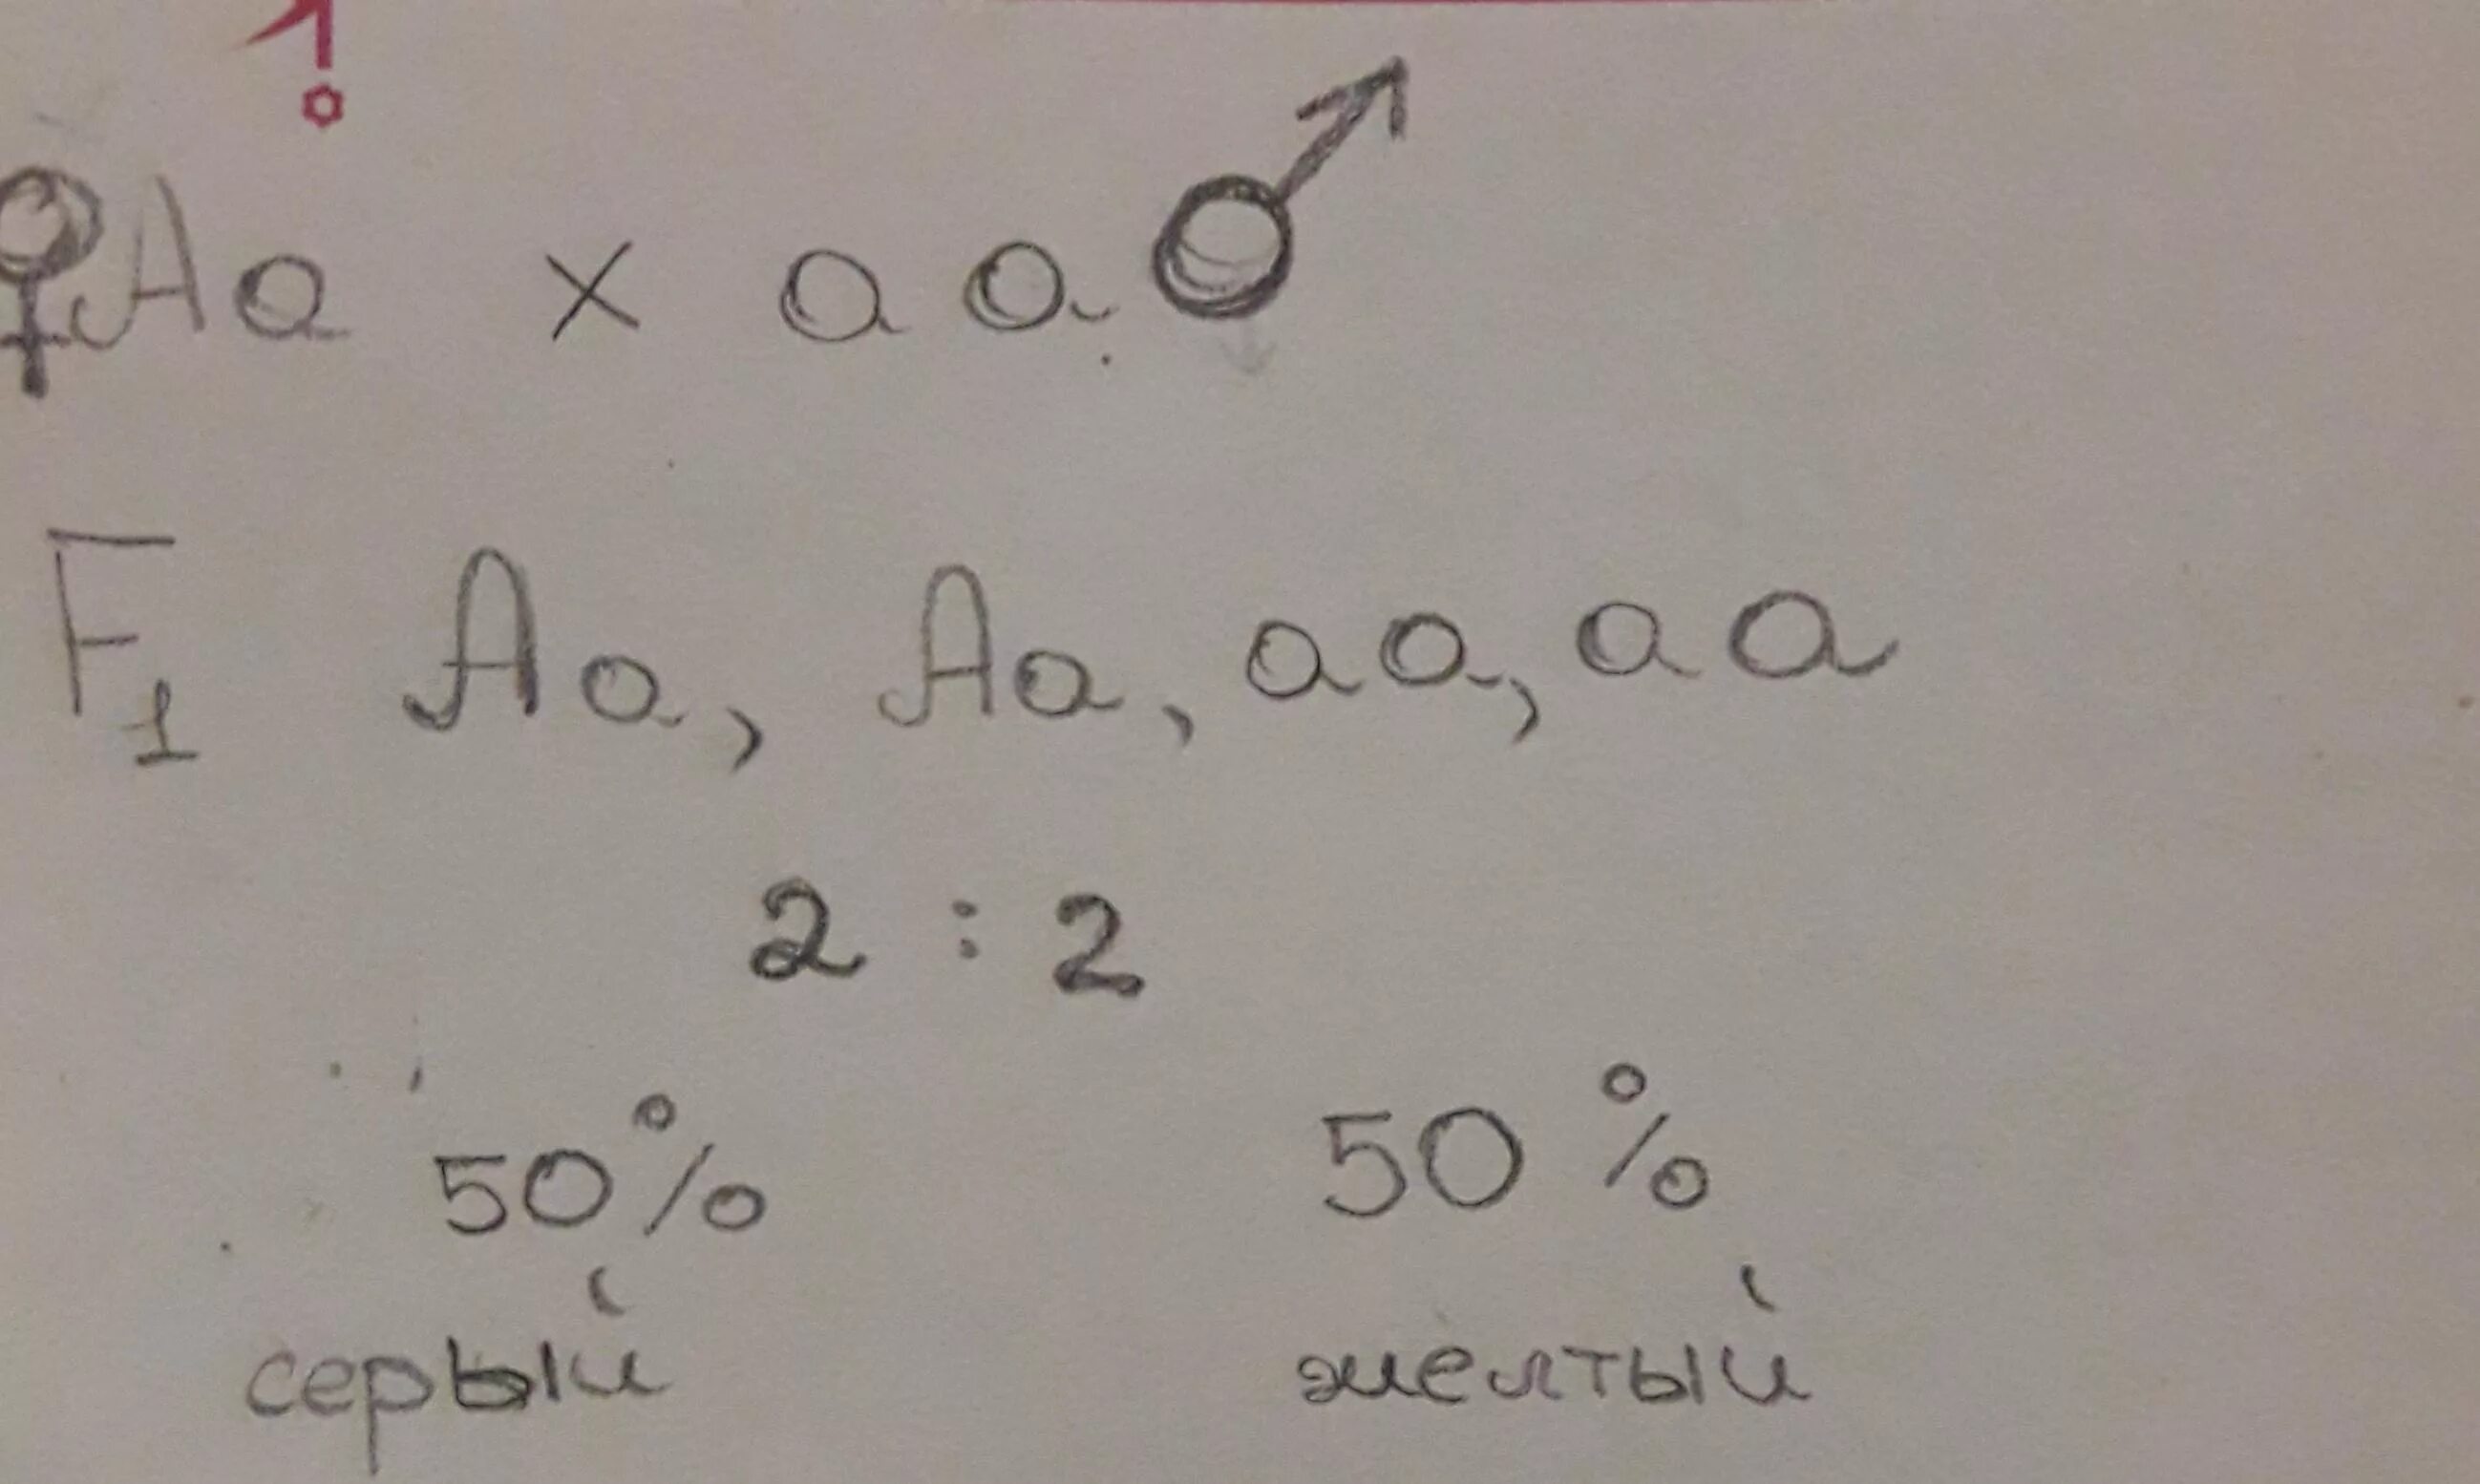 ♀Aa × aa ♂
F1 Aa, Aa, aa, aa
2 : 2
50% 50%
серый желтый